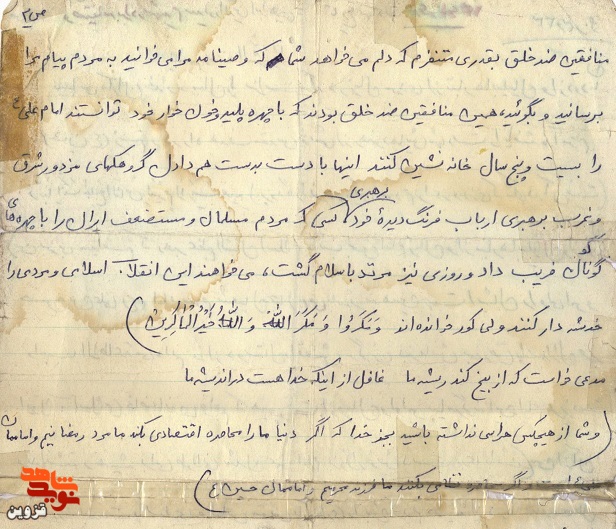 ص ۲
منافقین ضد خلق بقدری متنفرم که دلم می خواهد شما که وصیتنامه مرا می خوانید به مردم پیام مرا
برسانید و بگوئید، همین منافقین ضد خلق بودند که با چهره پلید و خون خوار خود توانستند امام علی ع
را بیست و پنج سال خانه نشین کنند اینها با دست بدست هم دادن گروهکهای مزدور شرق
و غرب برهبری ارباب فرنگ دیدۀ خود برهبری کسی که مردم مسلمان و مستضعف ایران را با چهره های
گوناگون فریب داد و روزی نیز مرتد باسلام گشت، می خواهند این انقلاب اسلامی و مردمی را
خدشه دار کنند ولی کور خوانده اند وَ مَکَرُوا وَ مَکَرَ اللهُ وَ اللهُ خَیْرُ الْماکِرینَ)
مدعی خواست که از بیخ کند ریشه ما غافل از اینکه خدا هست در اندیشه ما
(و شما از هیچکس هراسی نداشته باشید بجز خدا که اگر دنیا ما را محاصره اقتصادی کند ما مرد رمضانیم و اماممان
علی ع است و اگر نظامی بکنند ما فرزند محرمیم و اماممان حسین ع)
شاهد
نوید
قزوین